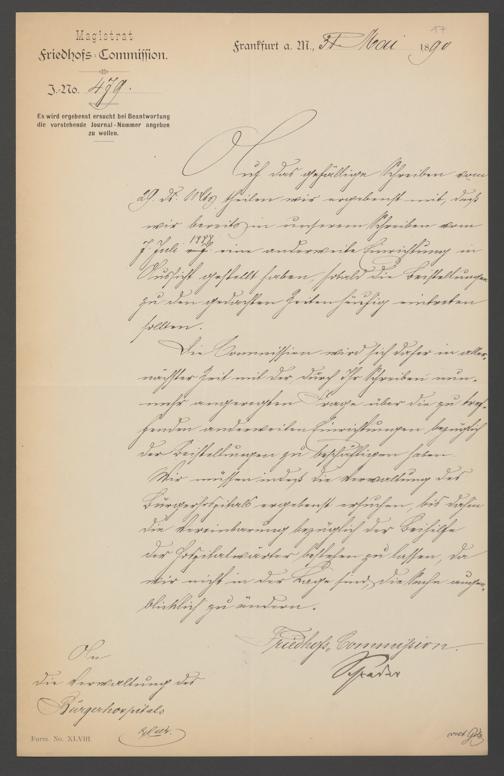 17
Magistrat
Friedhofs-Commission.
Frankfurt a. M., 31 Mai 1890
J.-No. 479.
Es wird ergebenst ersucht bei Beantwortung
die vorstehende Journal-Nummer angeben
zu wollen.
Auf das gefällige Schreiben vom
29 ds. Mts. theilen wir ergebenst mit, daß
wir bereits in unserem Schreiben vom
7 Juli 1888 eine anderweite Einrichtung in
Aussicht gestellt haben, sobald die Beistellungen
zu den gedachten Zeiten häufig eintreten
sollten.
Die Commission wird sich daher in aller-
nächster Zeit mit der durch Ihr Schreiben nun-
mehr angeregten Frage über die zu treff-
fenden anderweiten Einrichtungen bezüglich
der Beistellungen zu beschäftigen haben.
Wir müssen indeß die Verwaltung des
Bürgerhospitals ergebenst ersuchen, bis dahin
die Vereinbarung bezüglich der Beihilfe
der Hospitalwärter bestehen zu lassen, da
wir nicht in der Lage sind, die Sache augen-
blicklich zu ändern.
Friedhofs-Commission.
An
die Verwaltung des
Bürgerhospitals
Form. No. XLVIII.